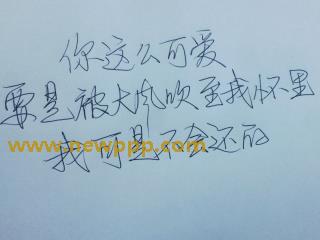 你这么可爱
要是被大风吹至我怀里
www.newppp.com
我可是不会还的